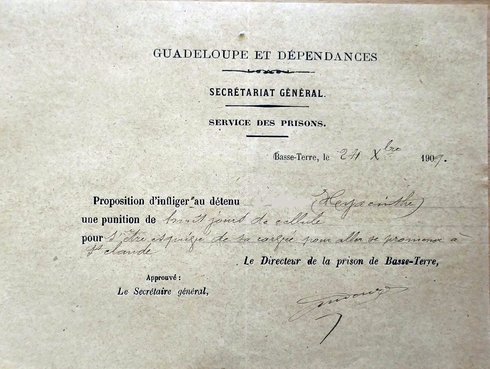 GUADELOUPE ET DÉPENDANCES
SECRÉTARIAT GÉNÉRAL.
SERVICE DES PRISONS.
Basse-Terre, le 24 Xbre 1907.
Proposition d'infliger au détenu (Hyacinthe)
une punition de huit jours de cellule
pour s'être de la corvée pour aller se promener à
St Claude
Le Directeur de la prison de Basse-Terre,
Approuvé :
Le Secrétaire général,